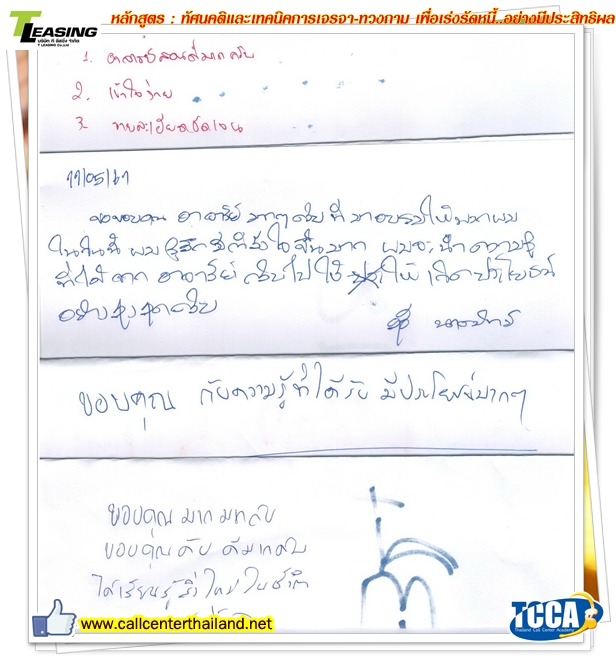 T LEASING
บริษัท ที ลีสซิ่ง จำกัด
T LEASING Co.,Ltd
หลักสูตร : ทัศนคติและเทคนิคการเจรจา-ทวงถาม เพื่อเร่งรัดหนี้..อย่างมีประสิทธิผล
1. อาจารย์สอนดีมากครับ
2. เข้าใจง่าย
3. รายละเอียดชัดเจน
11/05/61
ขอขอบคุณ อาจารย์ มากๆ ครับ ที่ มาอบรมให้พวกผม
ในวันนี้ ผม รู้สึก ดีใจ มาก ผมจะนำความรู้
ที่ได้ จาก อาจารย์ ครับ ไป ใช้ ให้ เกิด ประโยชน์
อย่างสูงสุดครับ
ขอบคุณ กับความรู้ที่ได้รับ มีประโยชน์มากๆ
ขอบคุณ มาก มาก ครับ
ขอบคุณครับ ดีมากครับ
ได้เรียนรู้สิ่งใหม่ในชีวิต
www.callcenterthailand.net
TCCA
Thailand Call Center Academy